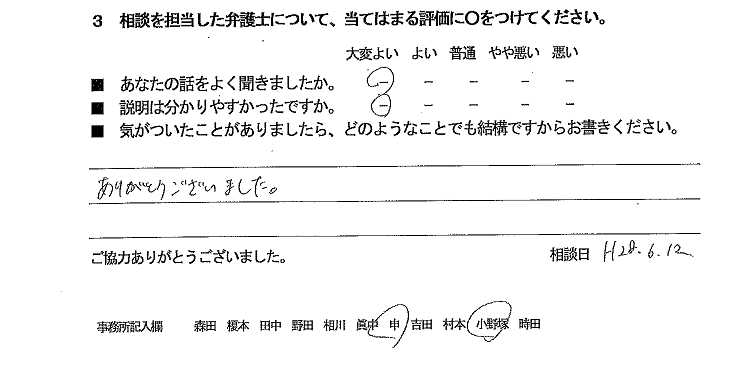 3 相談を担当した弁護士について、当てはまる評価に〇をつけてください。
大変よい よい 普通 やや悪い 悪い
■ あなたの話をよく聞きましたか。 － － － － －
■ 説明は分かりやすかったですか。 － － － － －
■ 気がついたことがありましたら、どのようなことでも結構ですからお書きください。
ありがとうございました。
ご協力ありがとうございました。 相談日 H28.6.12
事務所記入欄 森田 榎本 田中 野田 相川 眞中 申 吉田 村本 小野塚 時田